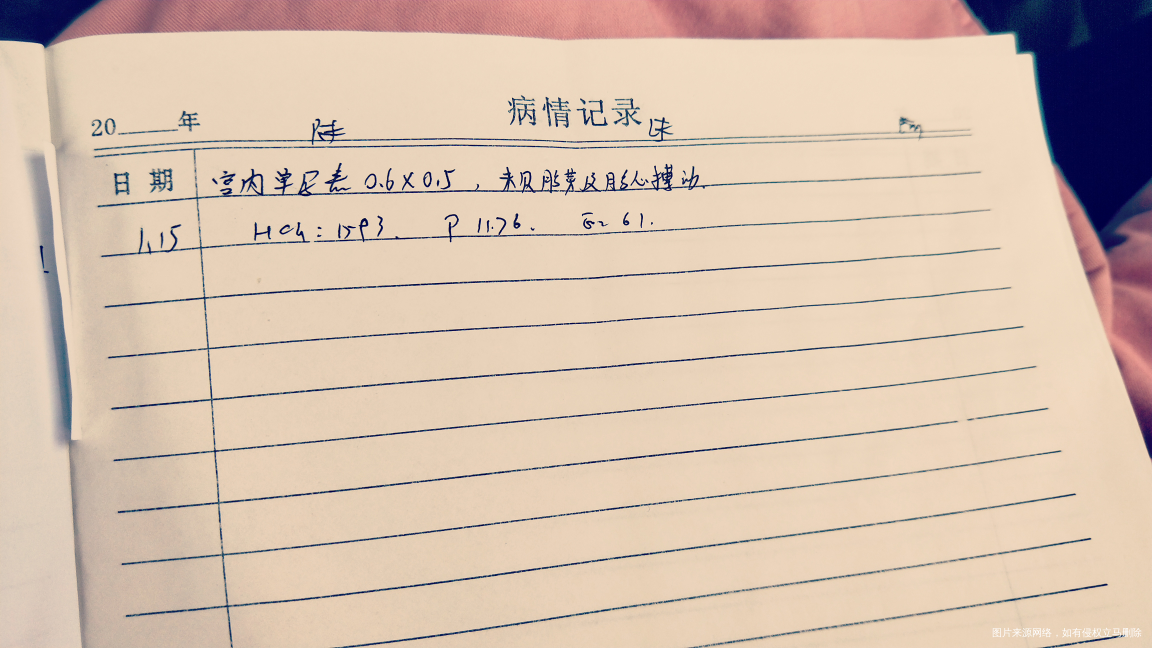 20 年
病情记录
日期 宫内单后壳 0.6×0.5 ，未见胚芽及胎心搏动.
1.15 HCG: 1593. P 11.76. E2 61.
图片来源网络，如有侵权立马删除